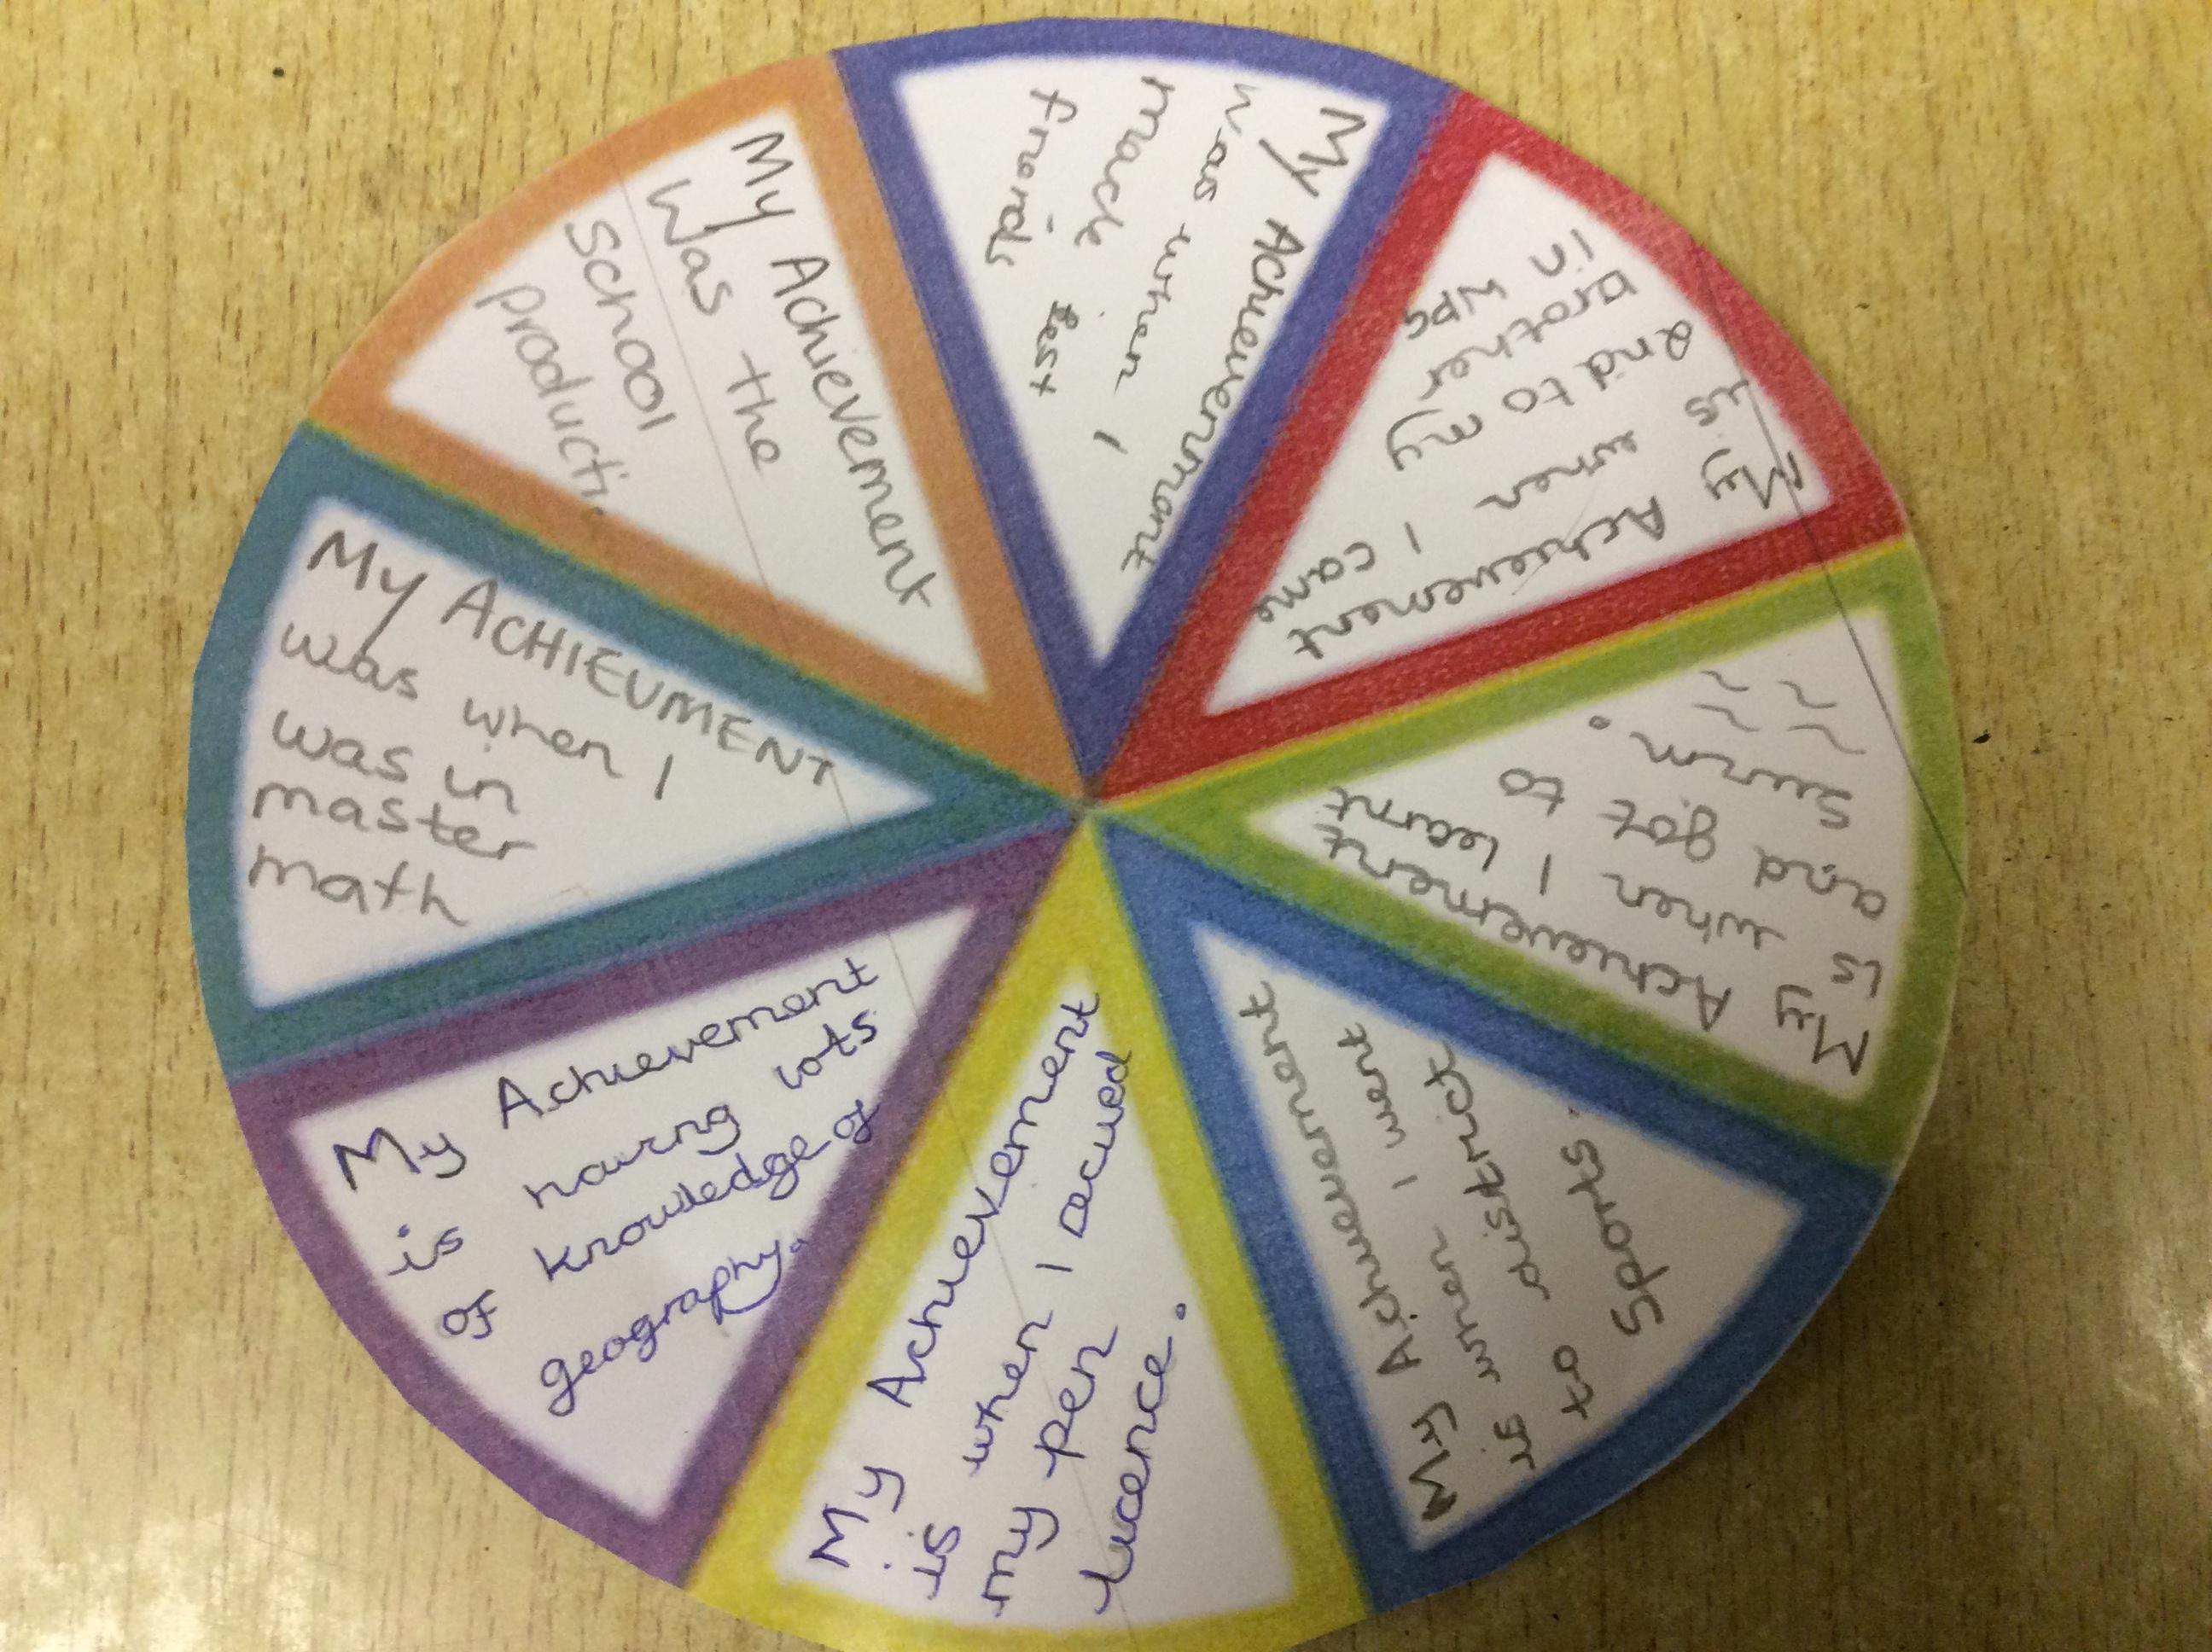 My Achievement
was when I
made best
friends
My Achievement
is when I came
2nd to my
brother
in WPG
My Achievement
is when I learnt
and got to
swim.
My Achievement
is when I went
to district
Sports.
My Achievement
is when I recued
my pen
lucence.
My Achievement
is having lots
of knowledge of
geography.
My ACHIEVMENT
was when I
was in
master
math
My Achievement
Was the
School
producti.